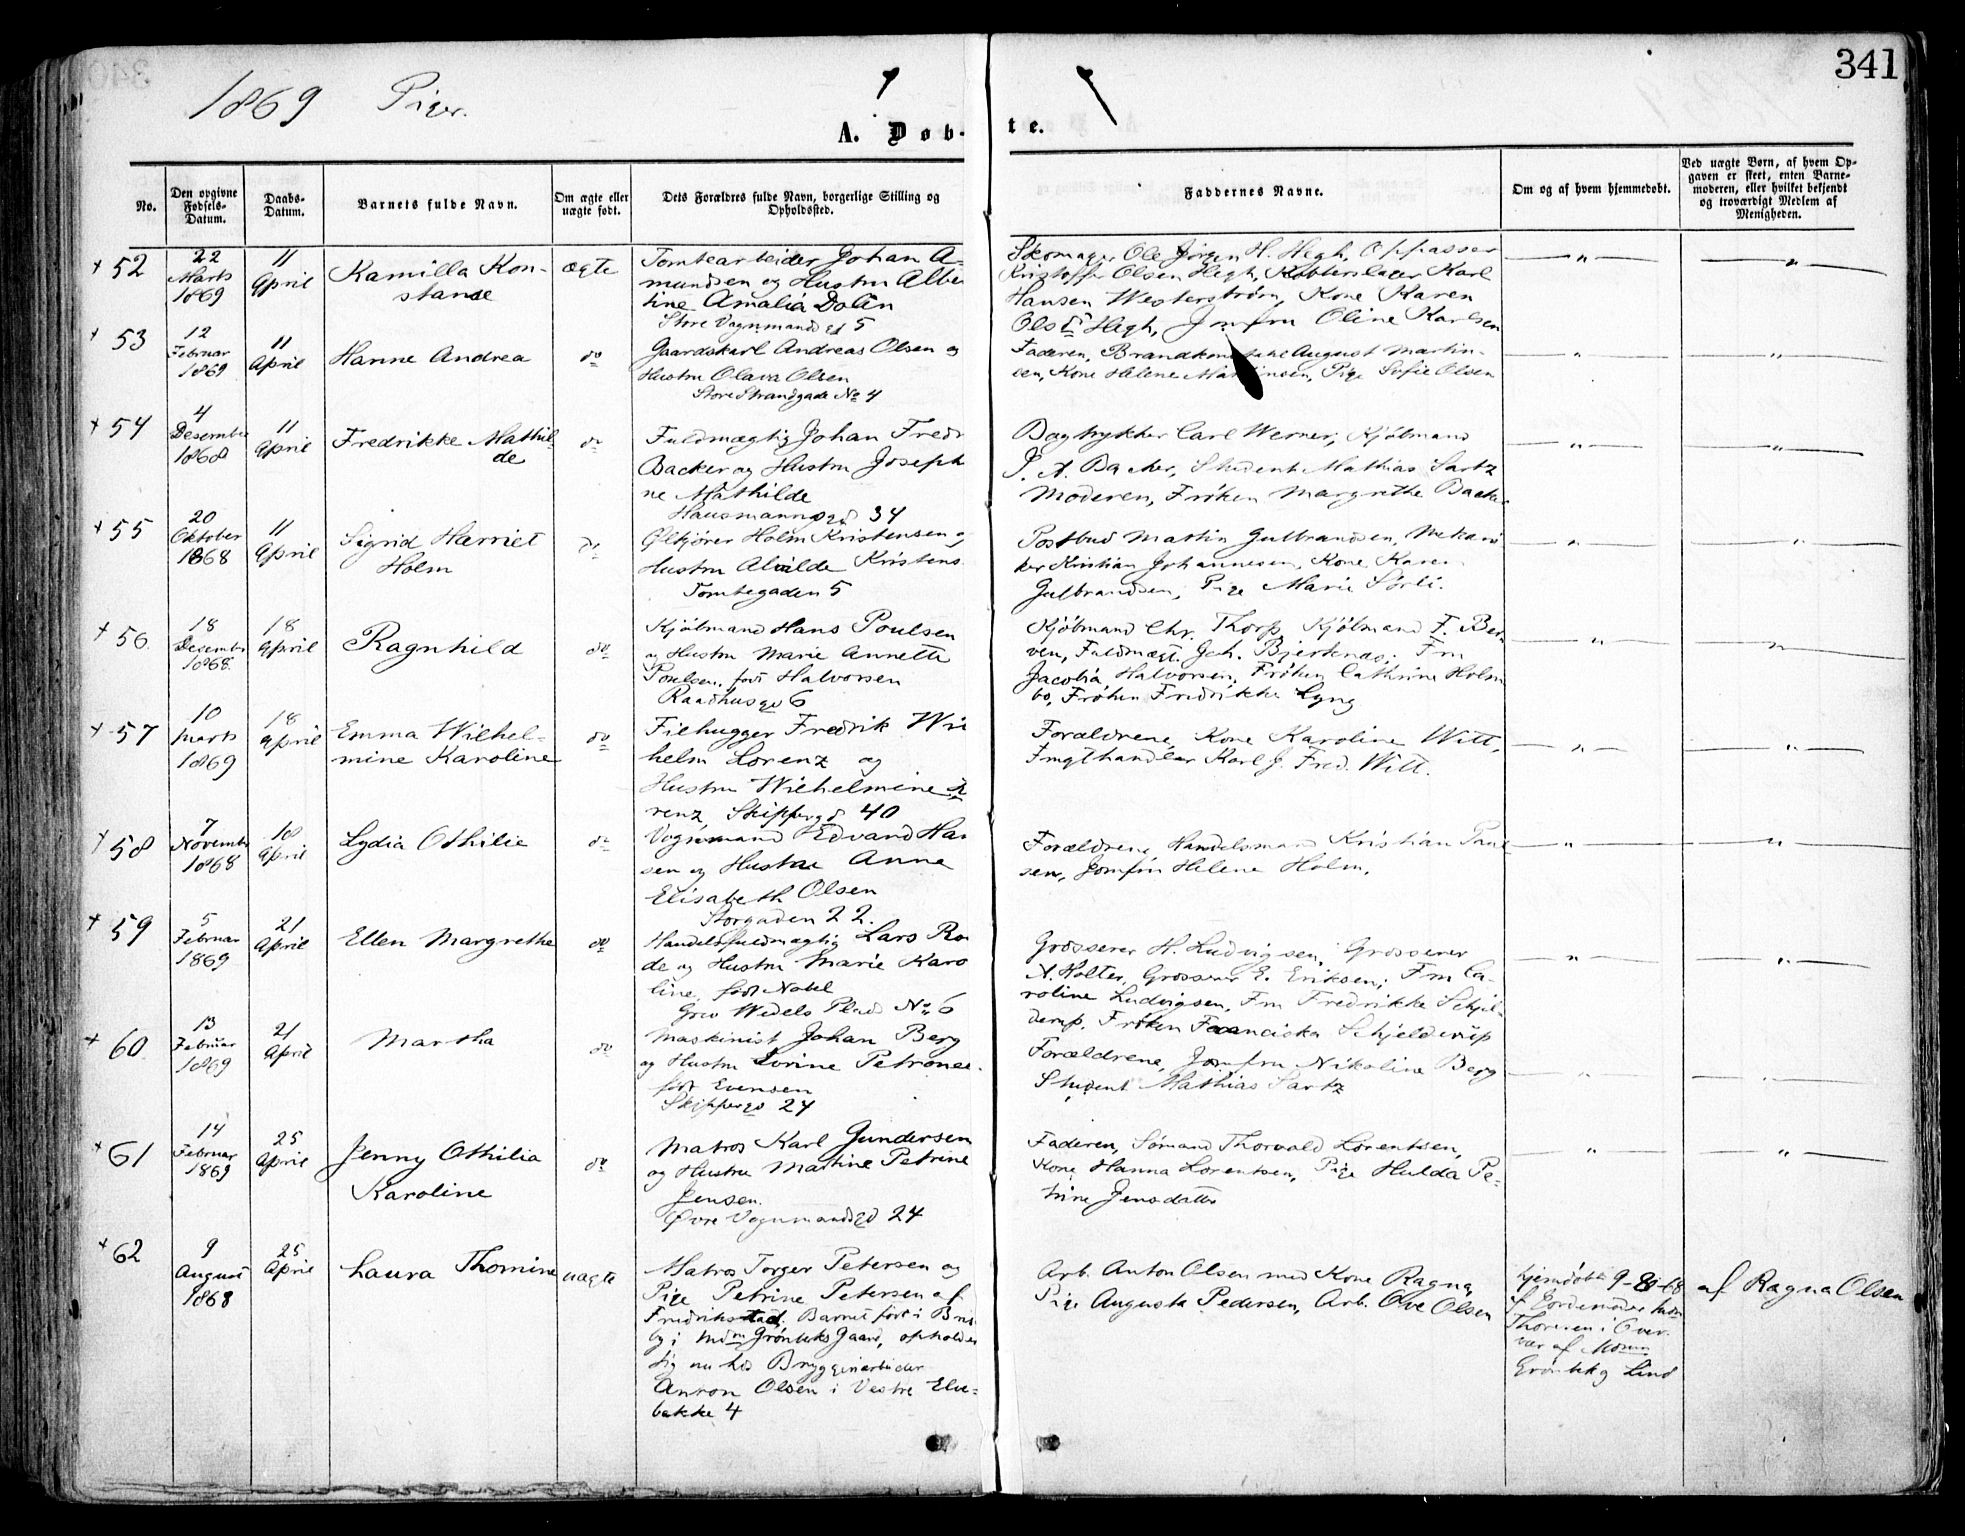 341
1869 Piger.
A. Døb-
te.
No.
Den opgivne Fødsels-Datum.
Daabs-Datum.
Barnets fulde Navn.
Om ægte eller uægte født.
Dets Forældres fulde Navn, borgerlige Stilling og Opholdssted.
Faddernes Navne.
Om og af hvem hjemmedøbt.
Ved uægte Børn, af hvem Opgaven er skeet, enten Barnemoderen, eller hvilket bekjendt og troværdigt Medlem af Menigheden.
52
22
Marts
1869
11
April
Kamilla Kon-
stanse
ægte
Tomtearbeider Johan A-
mundsen og Hustru Albe
tine Amalia Dolin
Store Vognmandsgd 5
Skomager Ole Jörgen H. Hegh, Oppasser
Kristoffer Olsen Hegh, Kobberslager Karl
Hansen Westerström, Kone Karen
Olsdtr Hegh, Jomfru Oline Karlsen
53
12
Februar
1869
11
April
Hanne Andrea
do
Gaardskarl Andreas Olsen og
Hustru Olava Olsen
Store Strandgade No 4
Faderen, August Martin-
sen, Kone Helene Martinsen, Pige Sofie Olsen
54
4
Desember
1868
11
April
Fredrikke Mathil-
de
do
Fuldmægtig Johan Fredr
Backer og Hustru Joseph
ne Mathilde
Hausmannsgd 34
Bogtrykker Carl Werner, Kjöbmand
J. A. Backer, Student Mathias Sartz
Moderen, Fröken Margrethe Backe
55
20
Oktober
1868
11
April
Sigrid Harriet
Holm
do
Ölkjörer Holm Kristensen og
Hustru Alvilde Kristens
Tomtegaden 5
Postbud Martin Gulbrandsen, Mekani
ker Kristian Johannesen, Kone Karen
Gulbrandsen, Pige Marie Sörli.
56.
18
Desember
1868.
18
April
Ragnhild
do
Kjöbmand Hans Poulsen
og Hustru Marie Annette
Poulsen, født Halvorsen
Raadhusgd 6
Kjöbmand Chr. Thorp, Kjöbmand F. Ber
ven, Fuldmægt. Joh. Bjerknæs, Fru
Jacobia Halvorsen, Fröken Cathrine Holm
bo, Fröken Fredrikke Lyng
57
10
Marts
1869
18
April
Emma Wilhel-
mine Karoline
do
Filhugger Fredrik Wil
helm Lorenz og
Hustru Wilhelmine Lo
renz, Skippergd 40
Forældrene, Kone Karoline Witt,
Frugthandler Karl J. Fred. Witt.
58
7
November
1868
18
April
Lydia Othilie
do
Vognmand Edvard Han
sen og Hustru Anne
Elisabeth Olsen
Storgaden 22.
Forældrene, Handelsmand Kristian Paul
sen, Jomfru Helene Holm.
59
5
Februar
1869
21
April
Ellen Margrethe
do
Handelsfuldmægtig Lars Ro
de og Hustru Marie Karo
line, født Nobel
Grev Wedels Plads No 6
Grosserer H. Ludvigsen, Grosserer
A. Holter, Grosserer E. Eriksen, Fru Ca-
roline Ludvigsen, Fru Fredrikke Schjel-
derup, Fröken Franciska Schjelderup
60.
13
Februar
1869
21
April
Martha
do
Maskinist Johan Berg
og Hustru Lovine Petronee.
født Evensen
Skippergd 24
Forældrene, Jomfru Nikoline Berg
Student Mathias Sartz
61
14
Februar
1869
25
April
Jenny Othilia
Karoline
do
Matros Karl Gundersen
og Hustru Martine Petrine
Jensen.
Øvre Vognmandsgd 24
Faderen, Sömand Thorvald Lorentsen,
Kone Hanna Lorentsen, Pige Hulda Pe-
trine Jensdatter
62
9
August
1868
25
April
Laura Thomine
uægte
Matros Torger Petersen og
Pige Petrine Petersen af
Fredrikstad, Barnet født i
i Grönbeks Gaard, opholder
sig nu hos Bryggeriarbeider
Anton Olsen i Vestre Elve-
bakke 4
Arb. Anton Olsen med Kone Ragna,
Pige Augusta Pedersen, Arb. Ove Olsen
hjemdöbt 9-8-68
af Jordemoder
Thoresen i Over-
vær af
Grönbek og Lind
af Ragna Olsen